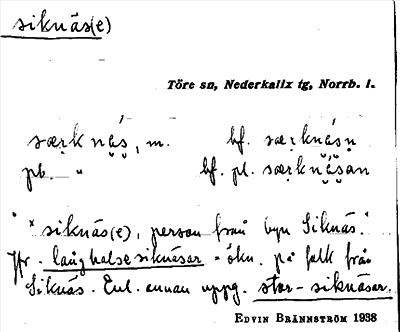 siknäs(e)
Töre sn, Nederkalix tg, Norrb. l.
særknás, m. bf. særknásn
pl. " bf. pl. særknásan
" × siknäs(e), person från byn Siknäs."
Jfr. långhalsesiknäsar = ökn. på folk från
Siknäs. Enl. annan uppg. stor-siknäsar.
EDVIN BRÄNNSTRÖM 1938